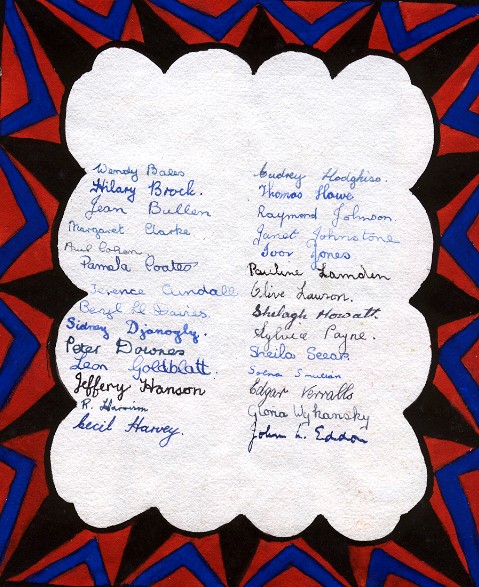 Wendy Bales
Hilary Brock.
Jean Bullen
Margaret Clarke
Paul Cohen
Pamela Coates
Terence Cundall
Beryl Davies
Sidney Djanogly.
Peter Downes
Leon Goldblatt.
Jeffery Hanson
R.
Cecil Harvey.
Audrey
Thomas Howe
Raymond Johnson.
Janet Johnstone
Ivor Jones
Pauline Lamden
Olive Lawson.
Shelagh Howatt
Sylvia Payne.
Sheila
Edgar Verralls
Gloria Wykansky
John L. Eddon